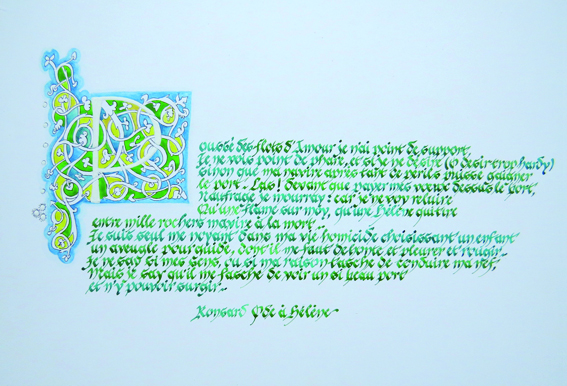 Poussé des flots d'Amour je n'ai point de support,
Je ne vois point de phare, et si je ne désire (O désir trop hardy)
sinon que ma navire après tant de périls puisse gaigner
le port.. Las! devant que payer mes voeux dessus le bort,
Naufrage je mourray: car je ne voy reluire
Qu'une flame sur moy, qu'une Hélène qui tire
entre mille rochers ma navire à la mort..
Je suis seul me noyant dans ma vie homicide choisissant un enfant
un aveugle pour guide, dont il me faut de honte et pleurer et rougir..
je ne sap si mes sens, ou si ma raison tasche de conduire ma nef,
Mais je sap qu'il me fasche de voir un si beau port
et n'y pouvoir surgir..
Ronsard Ode à Hélène